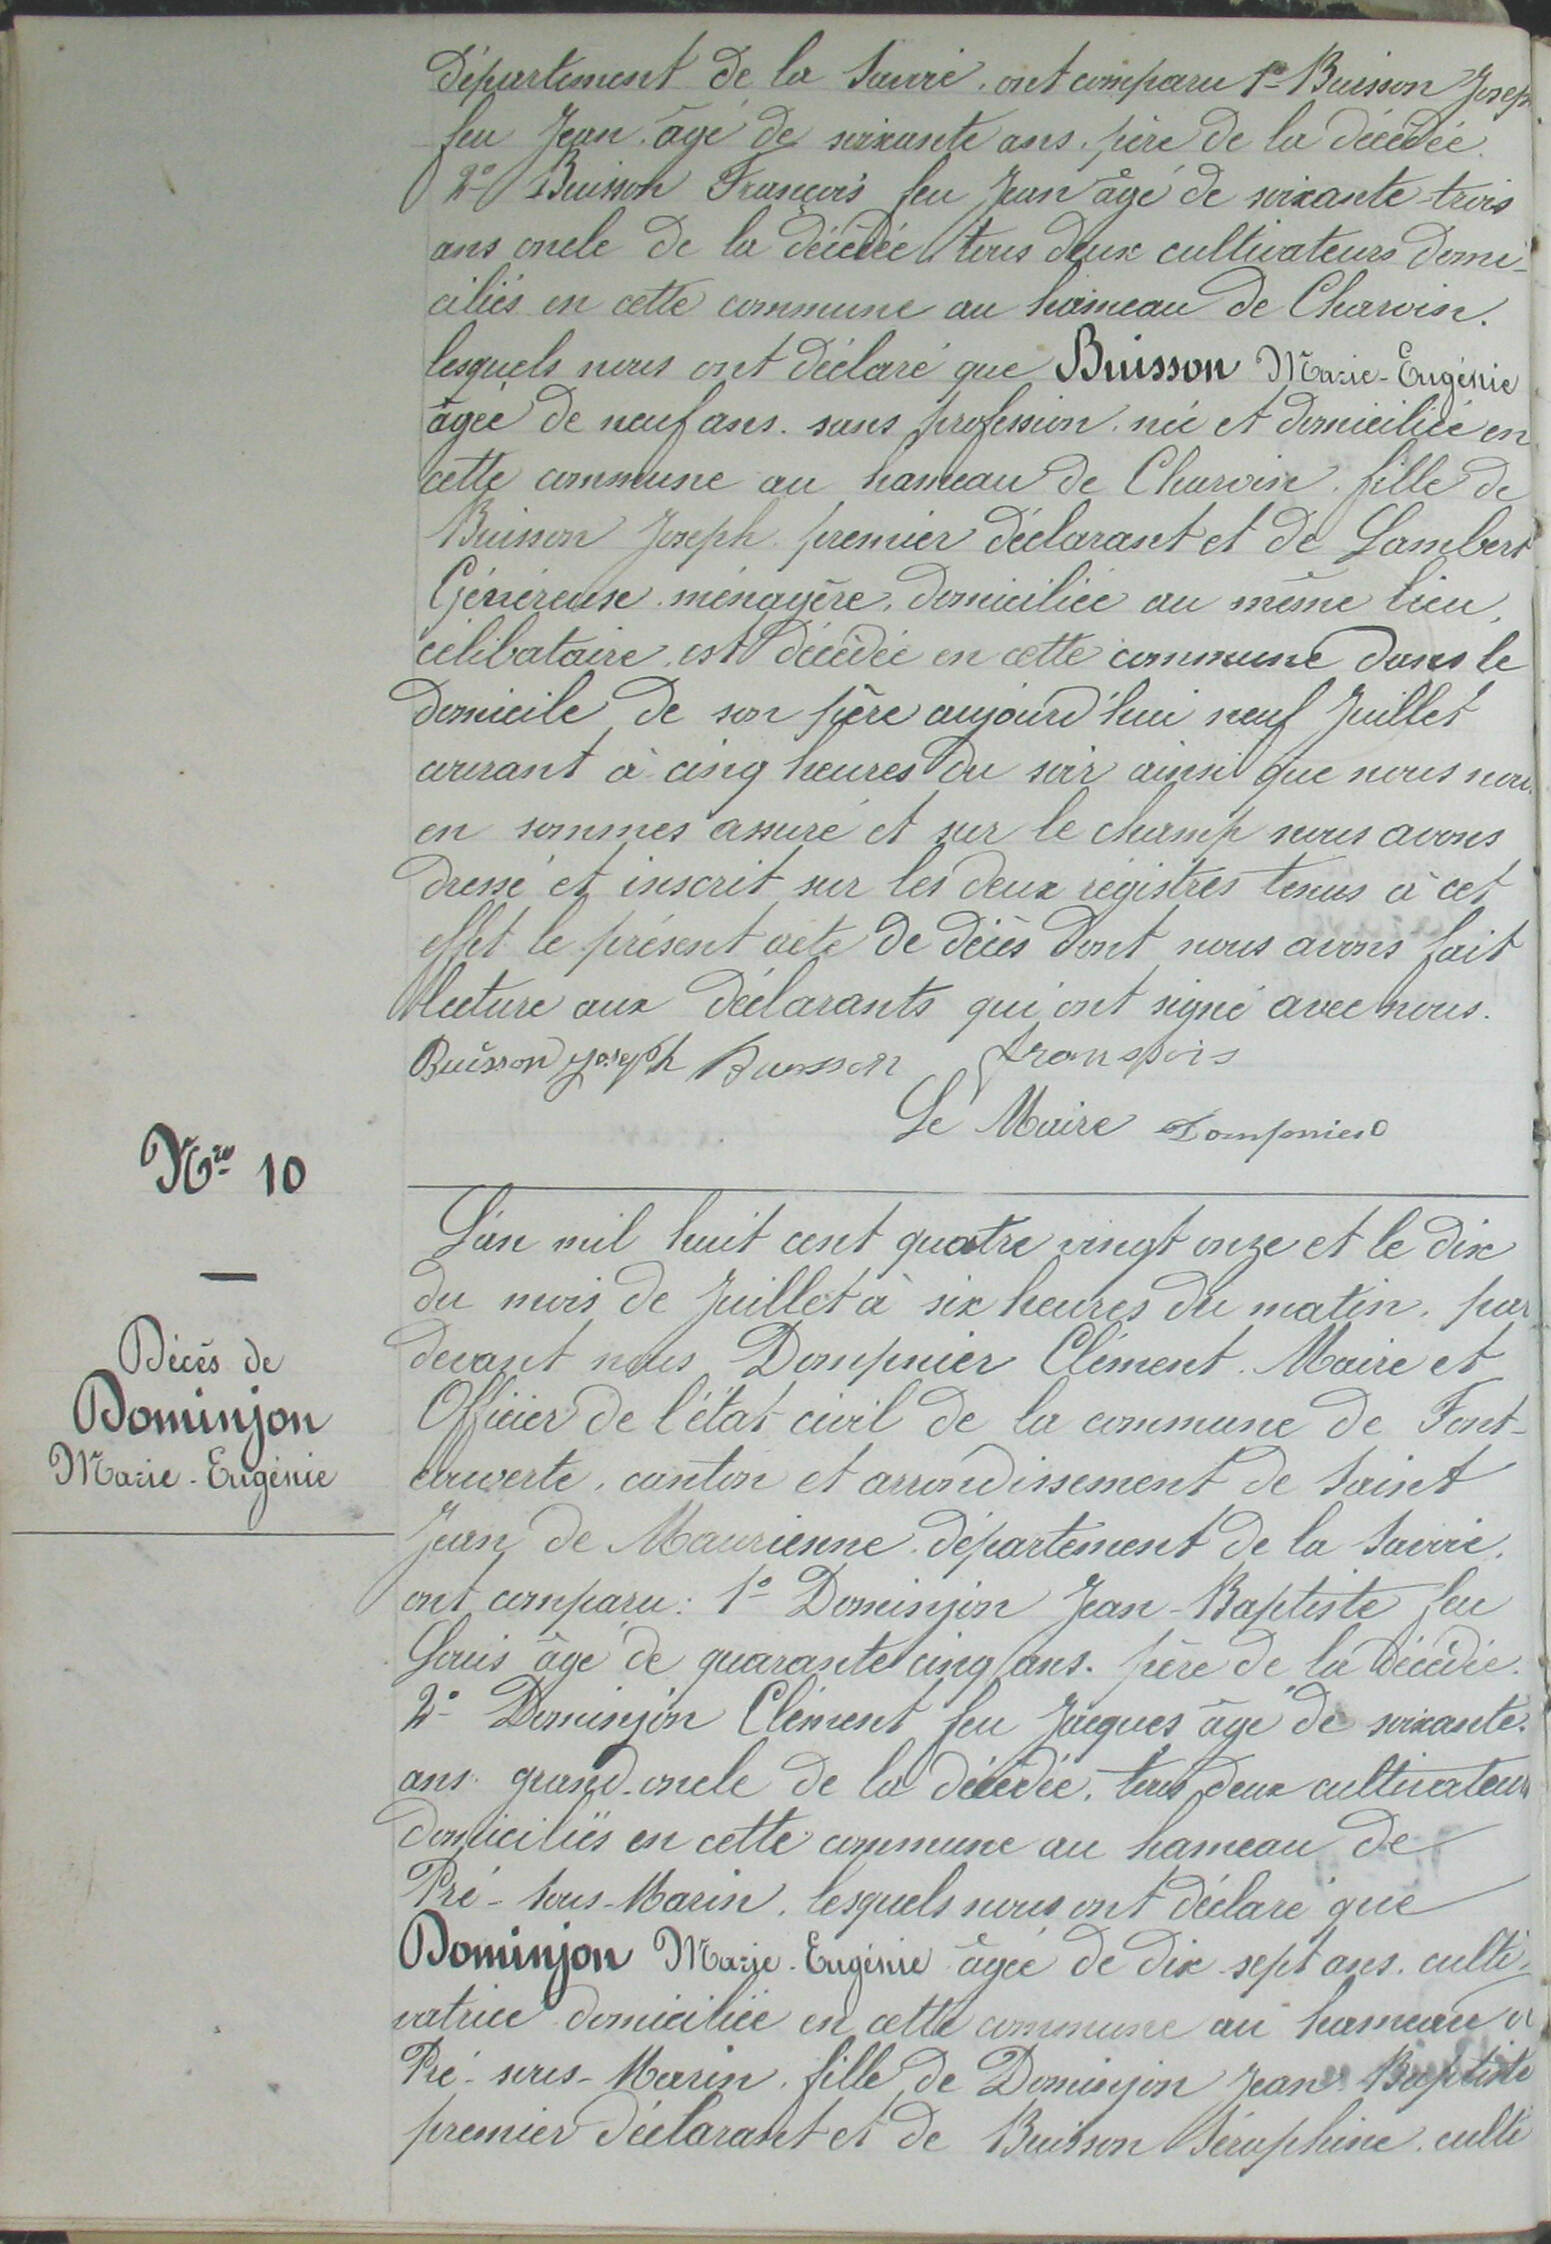 département de la Savoie. ont comparu 1° Buisson Joseph
feu Jean. âgé de soixante ans. père de la décédée.
2° Buisson François feu Jean âgé de soixante-trois
ans oncle de la décédée. tous deux cultivateurs domi-
ciliés en cette commune au hameau de Charvin.
lesquels nous ont déclaré que Buisson Marie-Eugénie
âgée de neuf ans. sans profession. née et domiciliée en
cette commune au hameau de Charvin. fille de
Buisson Joseph premier déclarant et de Lambert
Généreuse. ménagère. domiciliée au même lieu,
célibataire. est décédée en cette commune dans le
domicile de son père aujourd'hui neuf Juillet
courant à cinq heures du soir ainsi que nous nous
en sommes assuré et sur le champ nous avons
dressé et inscrit sur les deux régistres tenus à cet
effet le présent acte de décès dont nous avons fait
lecture aux déclarants qui ont signé avec nous.
Buisson joseph Buisson franspois
Le Maire Dompnier
Nro 10
Décès de
Dominjon
Marie-Eugénie
L'an mil huit cent quatre vingt onze et le dix
du mois de Juillet à six heures du matin. par
devant nous Dompnier Clément. Maire et
Officier de l'état civil de la commune de Font-
couverte. canton et arrondissement de Saint
Jean de Maurienne. département de la Savoie.
ont comparu: 1° Dominjon Jean-Baptiste feu
Louis âgé de quarante cinq ans. père de la décédée.
2° Dominjon Clément feu Jacques âgé de soixante.
ans. grand-oncle de la décédée. tous deux cultivateurs
domiciliés en cette commune au hameau de
Pré-sous-Marin. lesquels nous ont déclaré que
Dominjon Marie-Eugénie âgée de dix-sept ans. culti-
vatrice domiciliée en cette commune au hameau de
Pré-sous-Marin. fille de Dominjon Jean Baptiste
premier déclarant et de Buisson Séraphine. culti